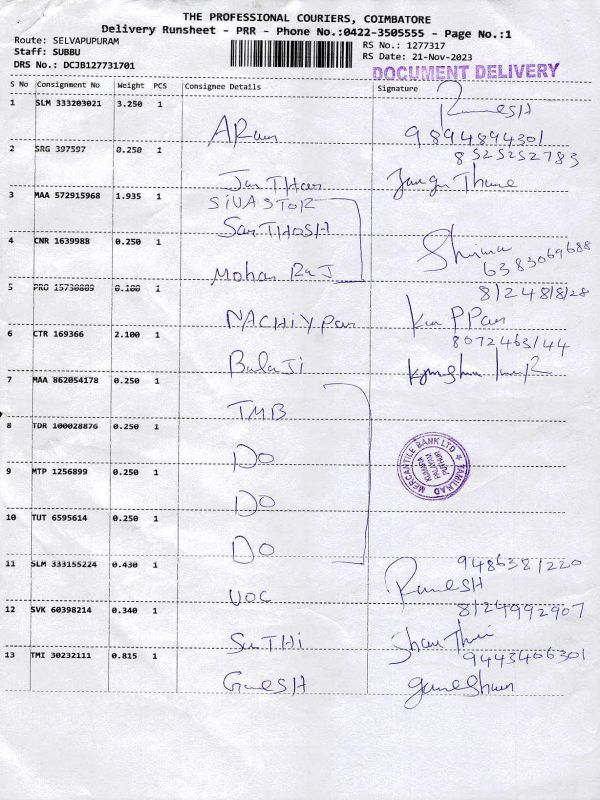 THE PROFESSIONAL COURIERS, COIMBATORE
Delivery Runsheet - PRR - Phone No.:0422-3505555 - Page No.:1
Route: SELVAPUPURAM
Staff: SUBBU
DRS No.: DCJB127731701
RS No.: 1277317
RS Date: 21-Nov-2023
DOCUMENT DELIVERY
S No Consignment No Weight PCS Consignee Details Signature
1 SLM 333203021 3.250 1
RameSH
9894894301
2 SRG 397597 0.250 1
8525252783
3 MAA 572915968 1.935 1
SIVASTOR
SanTHOSH
4 CNR 1639988 0.250 1
6383069688
Mohan RaJ
5 PRO 15730809 0.100 1
8124818128
NACHIYPan
6 CTR 169366 2.100 1
8072463144
BalaJi
7 MAA 862054178 0.250 1
TMB
8 TDR 100028876 0.250 1
DO
9 MTP 1256899 0.250 1
DO
10 TUT 6595614 0.250 1
DO
TAMILNAD MERCANTILE BANK LTD
11 SLM 333155224 0.430 1
9486381220
VOC
RameSH
12 SVK 60398214 0.340 1
8124992907
SaTHi
13 TMI 30232111 0.815 1
9443406301
GaneSH